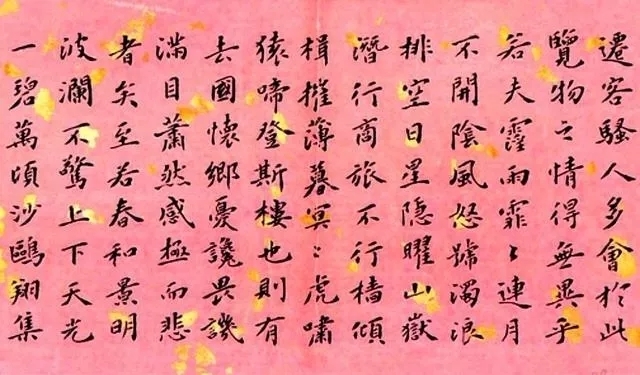 遷客騷人多會於此
覽物之情得無異乎
若夫霪雨霏〻連月
不開陰風怒號濁浪
排空日星隱曜山嶽
潛行商旅不行檣傾
楫摧薄暮冥〻虎嘯
猿啼登斯樓也則有
去國懷鄉憂讒畏譏
滿目蕭然感極而悲
者矣至若春和景明
波瀾不驚上下天光
一碧萬頃沙鷗翔集